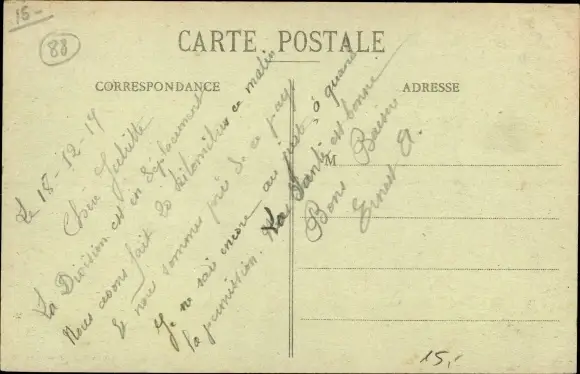 15-
88
CARTE POSTALE
CORRESPONDANCE
ADRESSE
M
Le 18-12-17
Chère Juliette
La Division est en déplacement
Nous avons fait 20 kilomètres ce matin
Et nous sommes près de ce pays
Je ne sai encore au just à quand
la permission. Ma Santé est bonne
Bons Baisers
Ernest A.
15,-